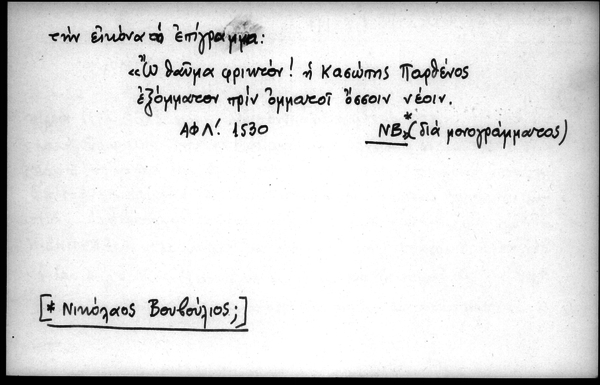 τὴν εἰκόνα τὸ ἐπίγραμμα:
«Ὢ θαῦμα φρικτόν! ἡ Κασώπης Παρθένος
ἐξόμματον πρὶν ὀμματοῖ ὄσσοιν νέοιν.
ΑΦΛ΄. 1530 ΝΒ* (διὰ μονογράμματος)
[* Νικόλαος Βουβούλιος;]